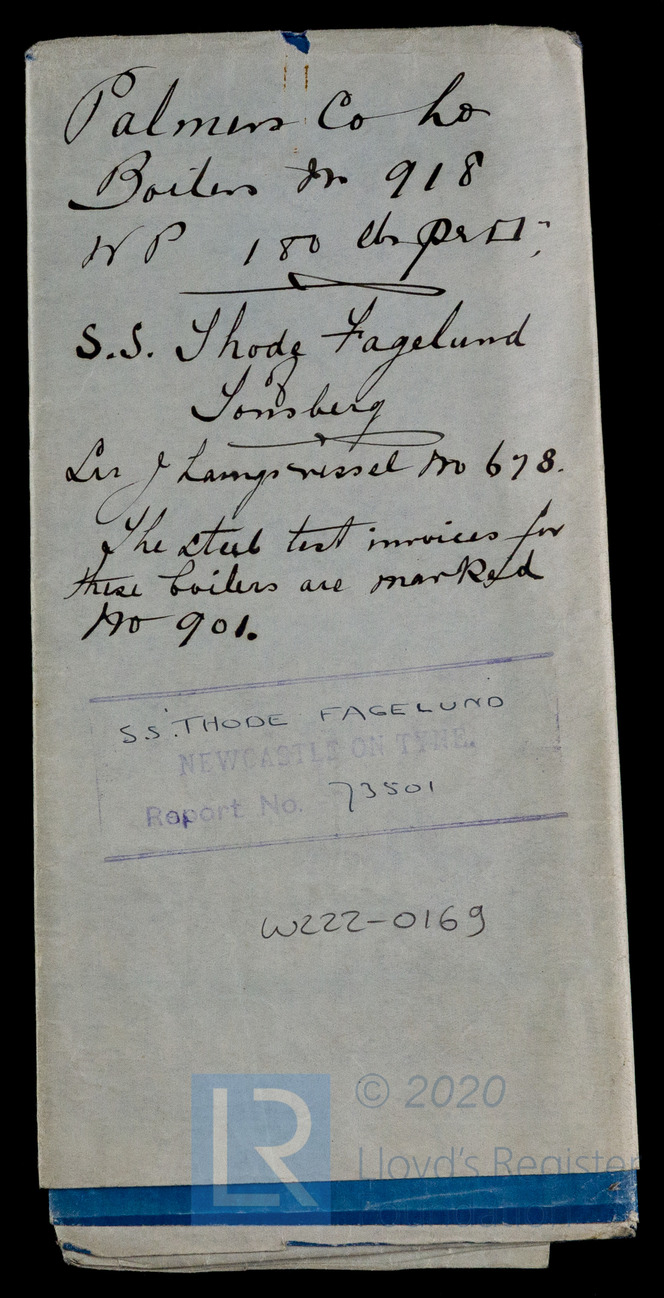 Palmers Co Ld
Boilers No 918
WP 180 lbs per □";
S.S. Thode Fagelund
Tönsberg
Sir J Laings vessel No 678.
The steel test invoices for
these boilers are marked
No 901.
S.S. THODE FAGELUND
NEWCASTLE ON TYNE.
Report No. 73501
W222-0169
LR
© 2020
Lloyd's Register
Foundation